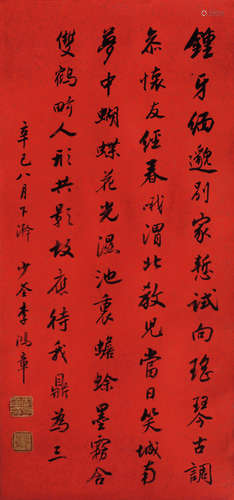 鍾牙緬邈別家慙試向瑤琴古調
參懷友經春哦渭北教兒當日笑城南
夢中蝴蝶花光濕池裏蟾蜍墨含
雙鶴人形共影故應待我鼎為三
辛巳八月下澣 少荃李鴻章